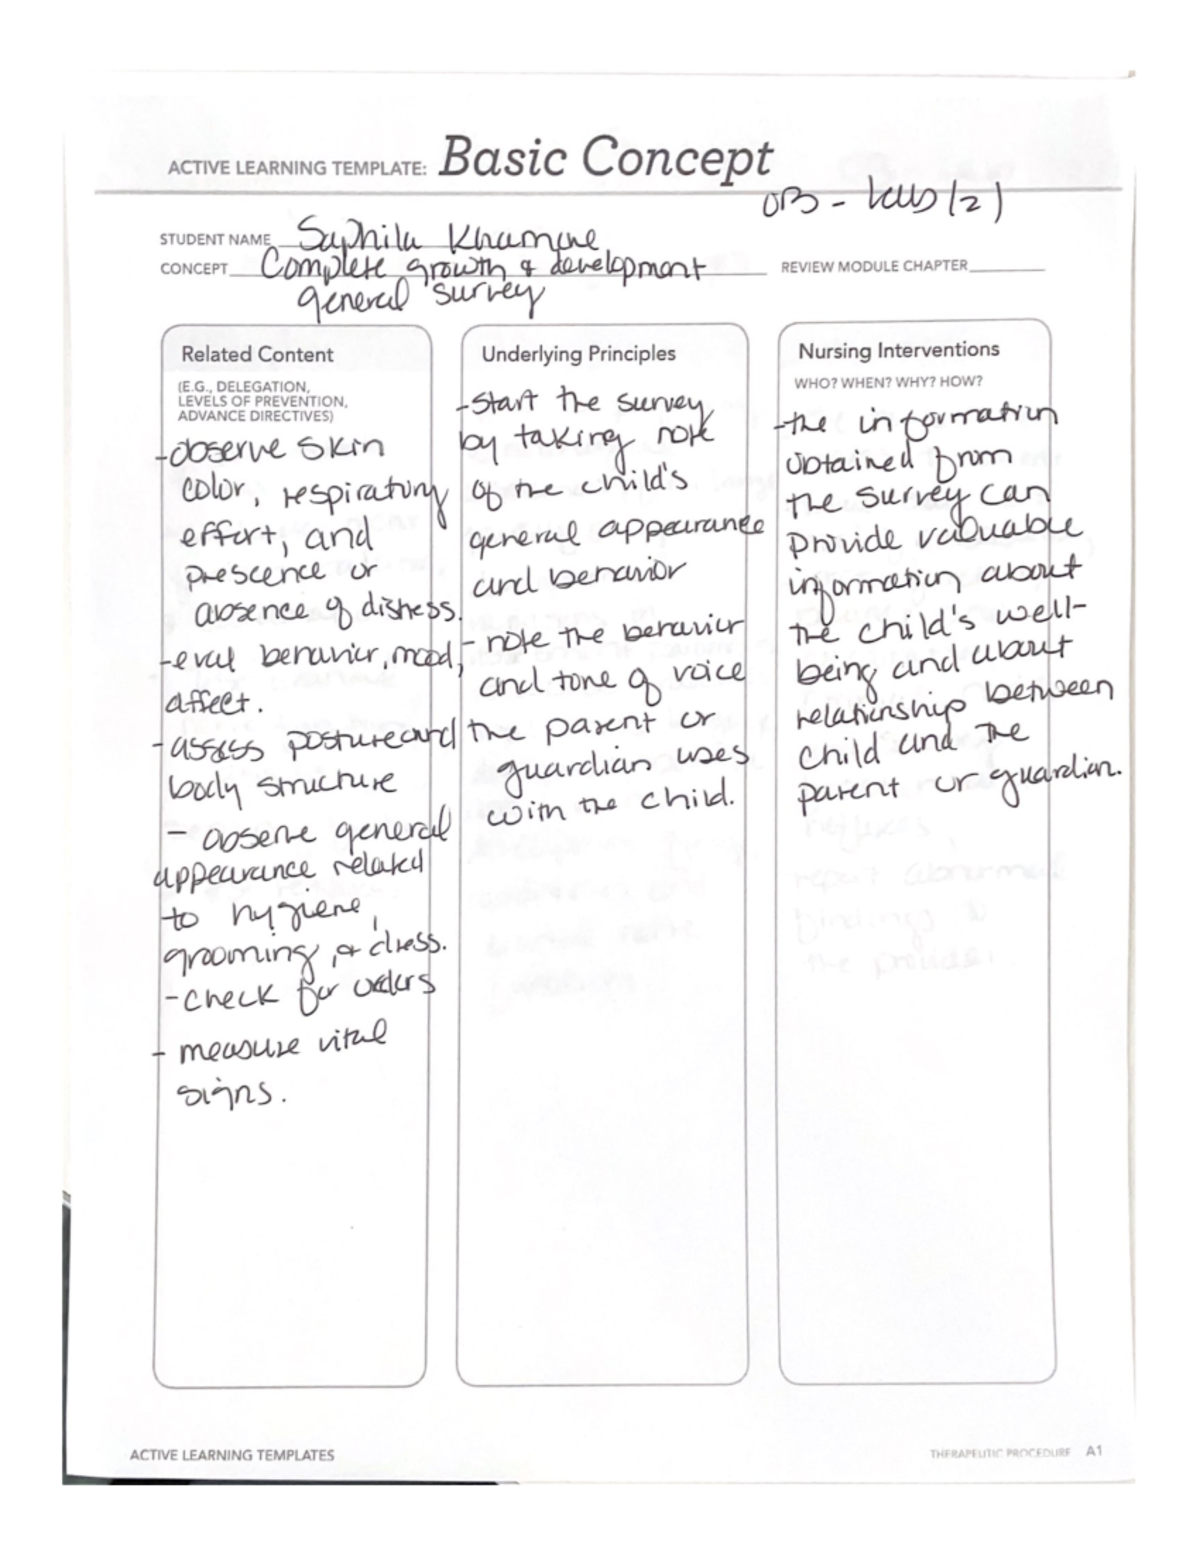 ACTIVE LEARNING TEMPLATE: Basic Concept
OB - (2)
STUDENT NAME Saphila
CONCEPT Complete growth & development
general survey
REVIEW MODULE CHAPTER
Related Content
(E.G., DELEGATION,
LEVELS OF PREVENTION,
ADVANCE DIRECTIVES)
-observe skin
color, respiratory
effort, and
prescence or
absence of distress.
-eval behavior, mood,
affect.
-assess posture and
body structure
- observe general
appearance related
to hygiene,
grooming, & dress.
-check for orders
- measure vital
signs.
Underlying Principles
-Start the survey
by taking note
of the child's
general appearance
and behavior
- note the behavior
and tone of voice
the parent or
guardian uses
with the child.
Nursing Interventions
WHO? WHEN? WHY? HOW?
-the information
obtained from
the survey can
provide valuable
information about
the child's well-
being and about
relationship between
child and the
parent or guardian.
ACTIVE LEARNING TEMPLATES
THERAPEUTIC PROCEDURE A1